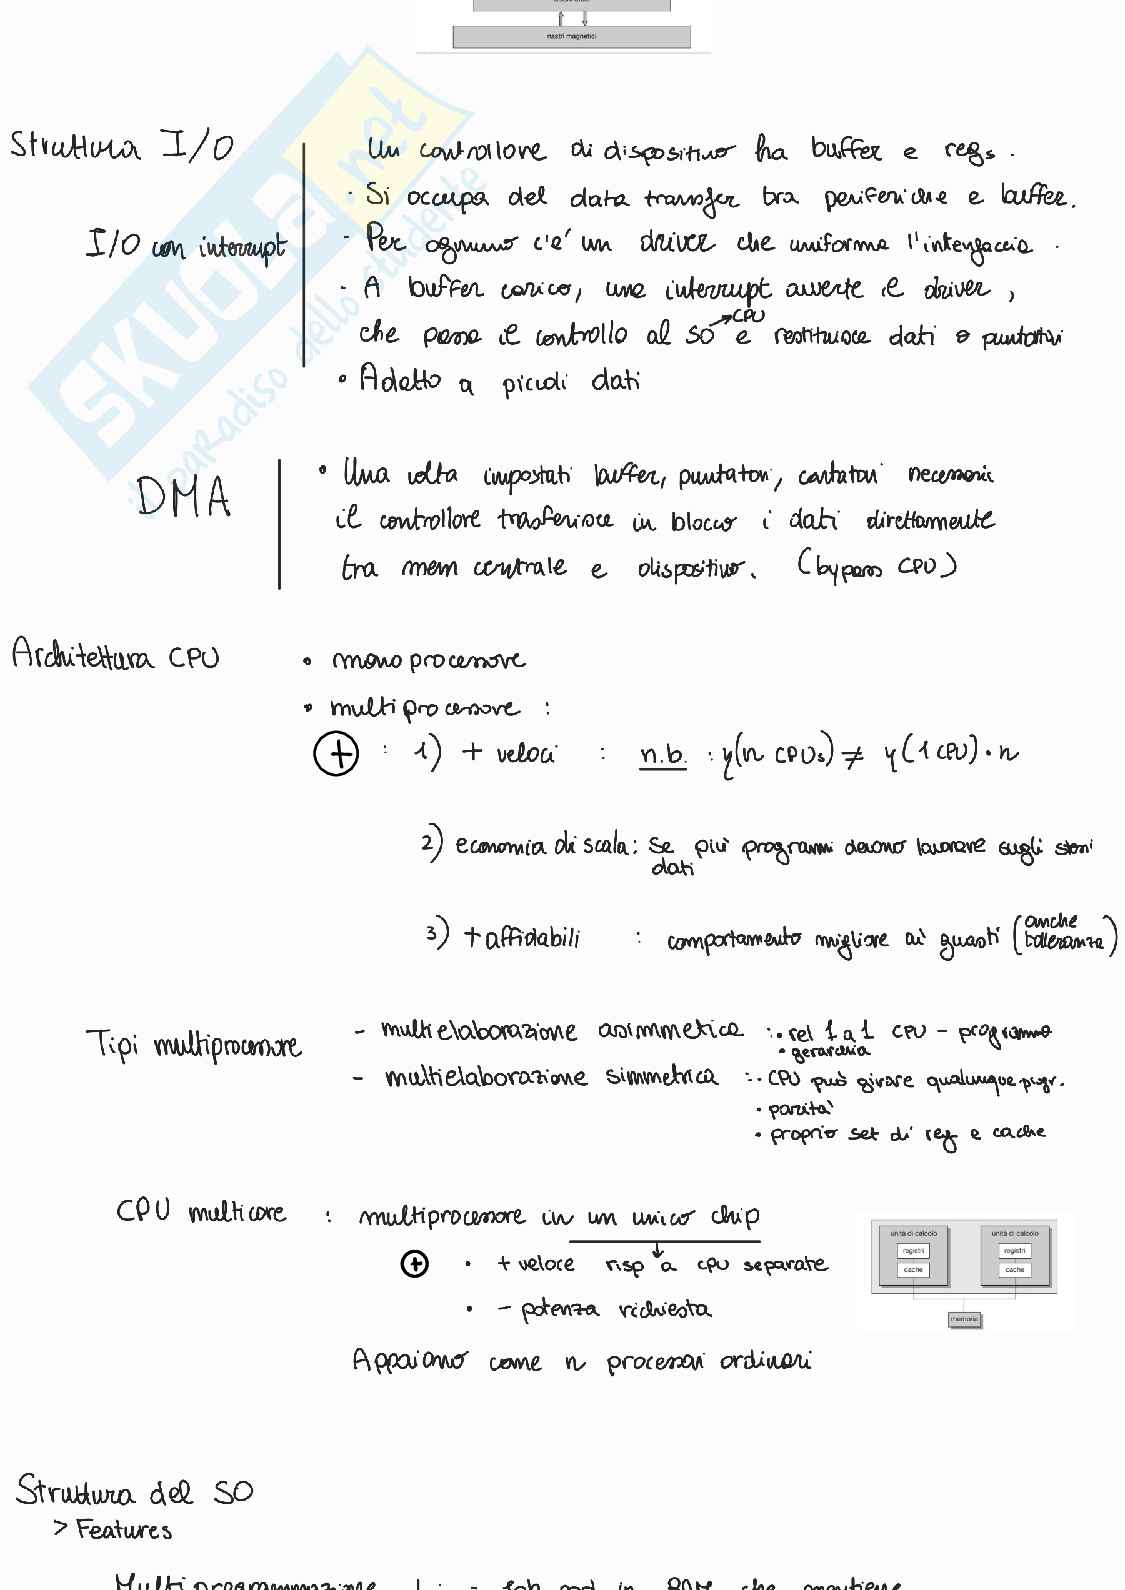 nastri magnetici
Struttura I/O
Un controllore di dispositivo ha buffer e regs.
· Si occupa del data transfer tra periferiche e buffer.
I/O con interrupt
· Per ognuno c'è un driver che uniforma l'interfaccia.
· A buffer carico, una interrupt avverte il driver,
CPU
che passa il controllo al SO e restituisce dati o puntatori
• Adatto a piccoli dati
DMA
• Una volta impostati buffer, puntatori, contatori necessari
il controllore trasferisce in blocco i dati direttamente
tra mem centrale e dispositivo. (bypass CPU)
Architettura CPU
• mono processore
• multi processore :
+ : 1) + veloci : n.b. : γ(n CPUs) ≠ γ(1 CPU)·n
2) economia di scala: Se più programmi devono lavorare sugli stessi
dati
3) + affidabili : comportamento migliore ai guasti (anche
tolleranza)
Tipi multiprocessore
- multielaborazione asimmetrica : • rel 1 a 1 CPU - programma
• gerarchia
- multielaborazione simmetrica : • CPU può girare qualunque progr.
• parità
• proprio set di reg e cache
CPU multicore : multiprocessore in un unico chip
+ • + veloce risp a cpu separate
• - potenza richiesta
Appaiono come n processori ordinari
unità di calcolo unità di calcolo
registri registri
cache cache
memoria
Struttura del SO
> Features
SKUOLA.net
il paradiso dello studente